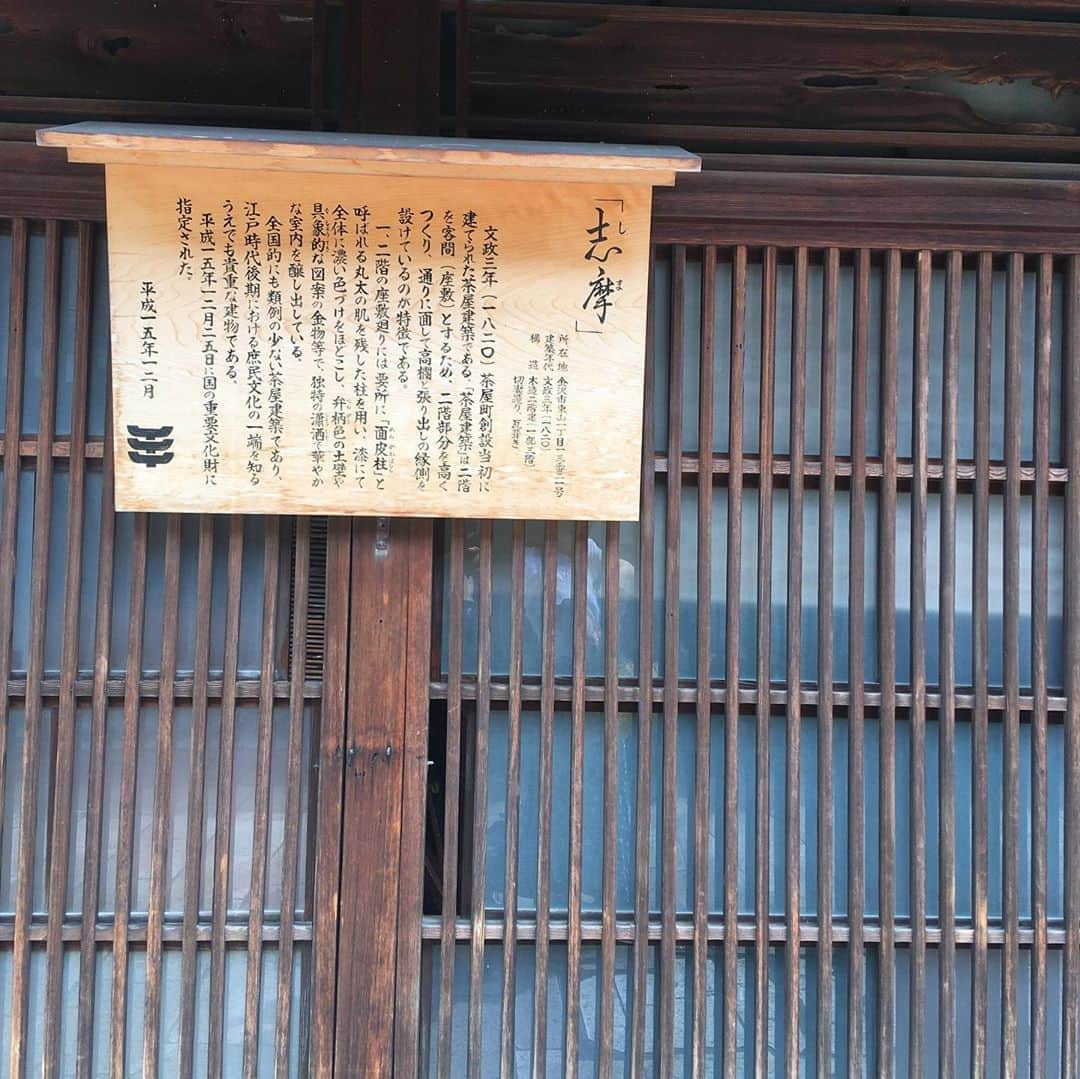 「志摩」
しま
所在地 金沢市東山一丁目一三番二一号
建築年代 文政三年(一八二〇)
構造 木造二階建(一部三階)、
切妻造り、瓦葺き
文政三年(一八二〇)茶屋町創設当初に
建てられた茶屋建築である。「茶屋建築」は二階
を客間(座敷)とするため、二階部分を高く
つくり、通りに面して高欄と張り出しの縁側を
設けているのが特徴である。
一、二階の座敷廻りには要所に「面皮柱」と
呼ばれる丸太の肌を残した柱を用い、漆にて
全体に濃い色づけをほどこし、弁柄色の土壁や
具象的な図案の金物等で、独特の瀟洒で華やか
な室内を醸し出している。
全国的にも類例の少ない茶屋建築であり、
江戸時代後期における庶民文化の一端を知る
うえでも貴重な建物である。
平成一五年一二月二五日に国の重要文化財に
指定された。
平成一五年一二月